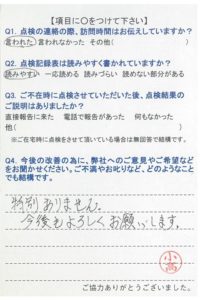 【項目に〇をつけて下さい】
Q1. 点検の連絡の際、訪問時間はお伝えしていますか?
言われた 言われなかった その他( )
Q2. 点検記録表は読みやすく書かれていますか?
読みやすい 一応読める 読みづらい 読めない部分がある
Q3. ご不在時に点検させていただいた後、点検結果の
ご説明はありましたか?
直接報告に来た 電話で報告があった 何もなかた
他( )
※ご在宅時に点検をさせて頂いている場合は無回答で結構です。
Q4. 今後の改善の為に、弊社へのご意見やご希望など
をお聞かせください。ご不満やお叱りなど、どのようなこと
でも結構です。
特別ありません。
今後もよろしくお願いします。
小高
ご協力ありがとうございました。